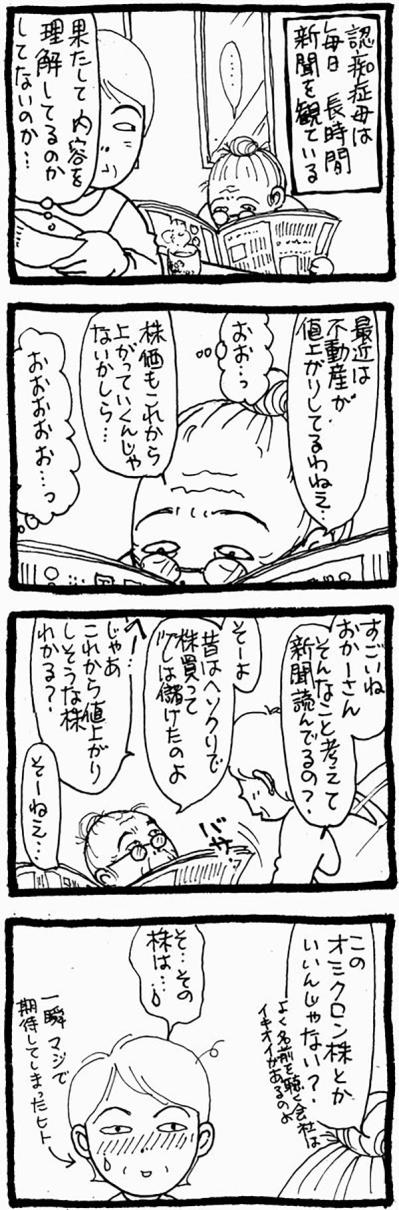 認痴症母は
毎日 長時間
新聞を観ている
‥‥
果たして内容を
理解してるのか
してないのか…
最近は
不動産が
値上がりしてるわねえ…
おお…っ
株価もこれから
上がっていくんじゃ
ないかしら…
おおおおお…っ
すごいね
おかーさん
そんなこと考えて
新聞読んでるの?
そーよ
昔はヘソクリで
株買って
少しは儲けたのよ
じゃあ
これから値上がり
しそうな株
わかる?
バサッ
そーねえ…
この
オミクロン株とか
いいんじゃない?
よく名前を聴く会社は
イキオイがあるのよ
そ…その
株は…
一瞬マジで
期待してしまったヒト